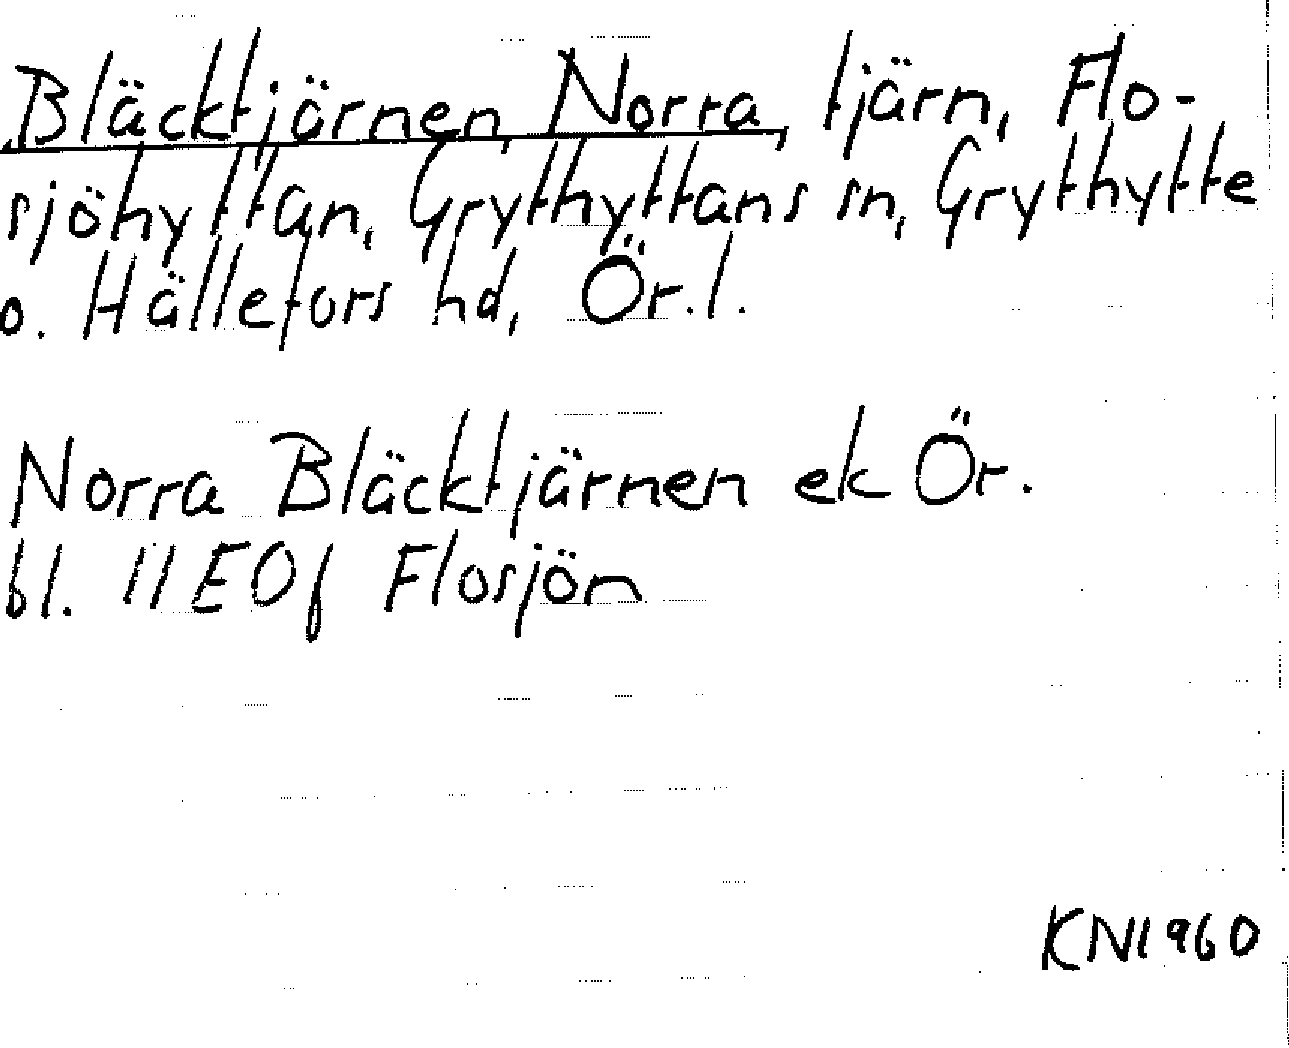 Bläcktjärnen, Norra, tjärn, Flo-
sjöhyttan, Grythyttans sn, Grythytte
o. Hällefors hd, Ör.l.
Norra Bläcktjärnen ek Ör.
bl. 11E0f Flosjön
KN1960